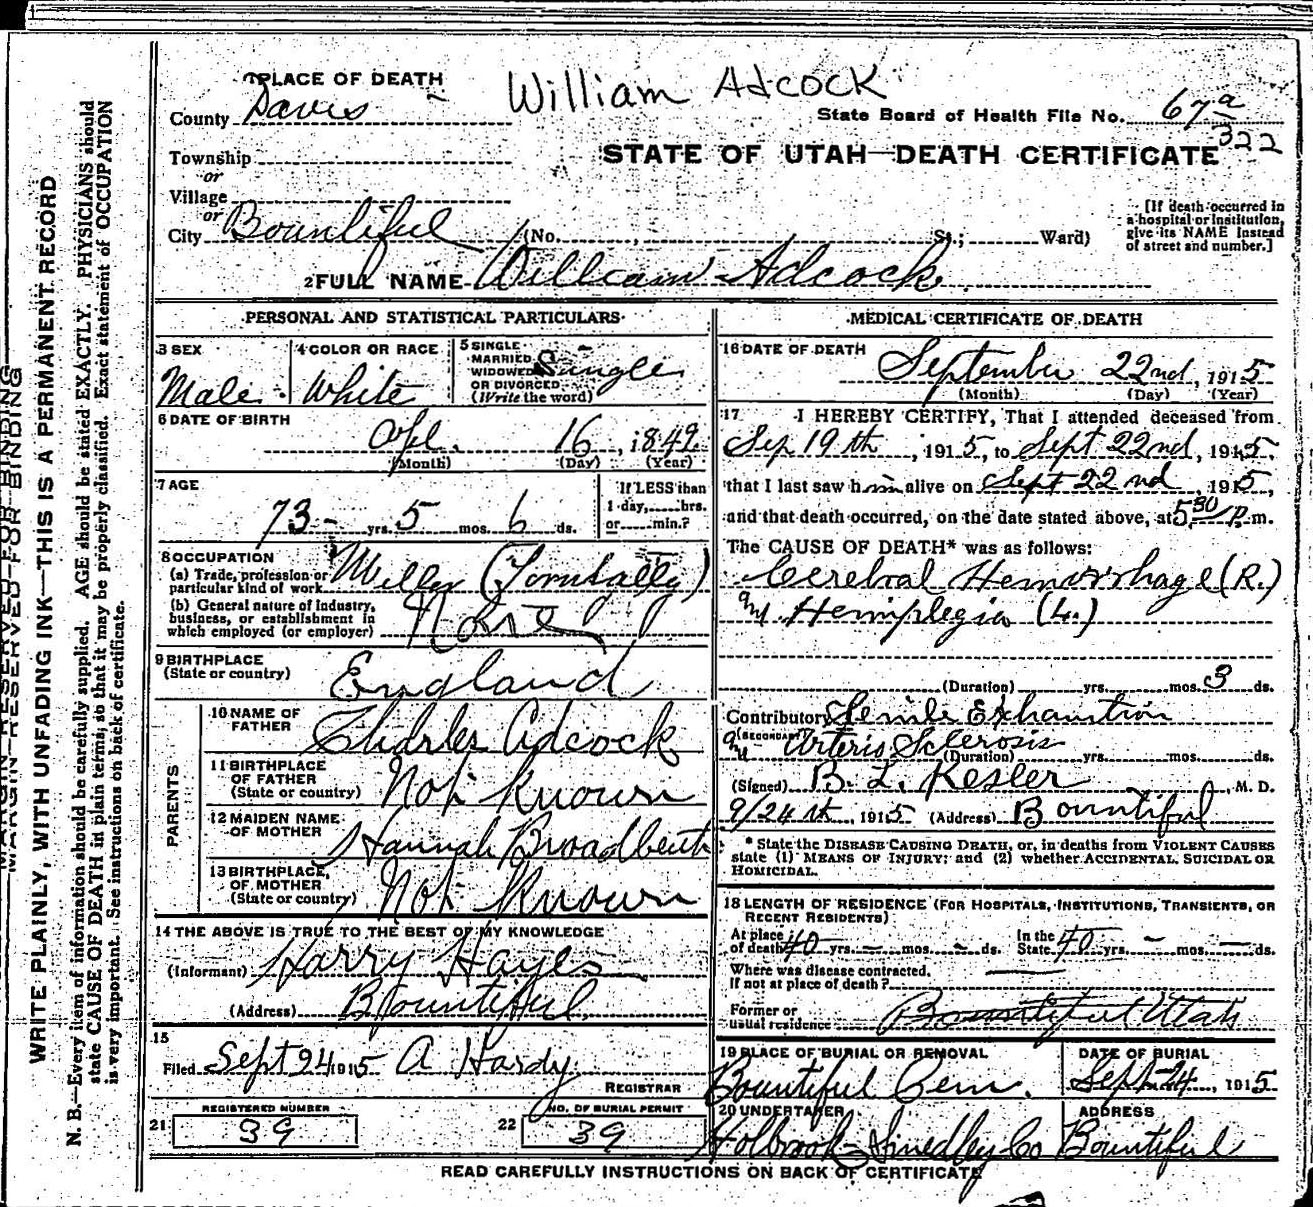 1 PLACE OF DEATH
William Adcock
County Davis
State Board of Health File No. 67 a
322
Township
STATE OF UTAH—DEATH CERTIFICATE
or
Village
or
City Bountiful (No. , St.; Ward)
[If death occurred in
a hospital or institution,
give its NAME instead
of street and number.]
2 FULL NAME William Adcock
PERSONAL AND STATISTICAL PARTICULARS
3 SEX
Male
4 COLOR OR RACE
White
5 SINGLE
MARRIED
WIDOWED
OR DIVORCED
(Write the word)
Single
6 DATE OF BIRTH
Apl. 16, 1849
(Month) (Day) (Year)
7 AGE
73 yrs. 5 mos. 6 ds.
If LESS than
1 day, hrs.
or min.?
8 OCCUPATION
(a) Trade, profession or
particular kind of work Miller (Formerly)
(b) General nature of Industry,
business, or establishment in
which employed (or employer) None
9 BIRTHPLACE
(State or country) England
PARENTS
10 NAME OF
FATHER Charles Adcock
11 BIRTHPLACE
OF FATHER
(State or country) Not Known
12 MAIDEN NAME
OF MOTHER Hannah Broadbent
13 BIRTHPLACE
OF MOTHER
(State or country) Not Known
14 THE ABOVE IS TRUE TO THE BEST OF MY KNOWLEDGE
(Informant) Harry Hayes
(Address) Bountiful
15
Filed Sept 24 1915 A Hardy
REGISTRAR
REGISTERED NUMBER
21 39
NO. OF BURIAL PERMIT
22 39
MEDICAL CERTIFICATE OF DEATH
16 DATE OF DEATH
September 22nd, 1915
(Month) (Day) (Year)
17 I HEREBY CERTIFY, That I attended deceased from
Sep 19th, 1915, to Sept 22nd, 1915,
that I last saw him alive on Sept 22nd, 1915,
and that death occurred, on the date stated above, at 5 30 P. m.
The CAUSE OF DEATH* was as follows:
Cerebral Hemorrhage (R.)
and Hemiplegia (L.)
(Duration) yrs. mos. 3 ds.
Contributory Senile Exhaustion
(SECONDARY) and Arterio Sclerosis
(Duration) yrs. mos. ds.
(Signed) B. L. Kesler, M. D.
9/24th, 1915 (Address) Bountiful
* State the DISEASE CAUSING DEATH, or, in deaths from VIOLENT CAUSES
state (1) MEANS OF INJURY; and (2) whether ACCIDENTAL, SUICIDAL OR
HOMICIDAL.
18 LENGTH OF RESIDENCE (FOR HOSPITALS, INSTITUTIONS, TRANSIENTS, OR
RECENT RESIDENTS)
At place
of death 40 yrs. — mos. — ds.
In the
State 40 yrs. — mos. — ds.
Where was disease contracted,
If not at place of death?
Former or
usual residence Bountiful Utah
19 PLACE OF BURIAL OR REMOVAL
Bountiful Cem.
DATE OF BURIAL
Sept 24, 1915
20 UNDERTAKER
Holbrook-Smedley Co
ADDRESS
Bountiful
READ CAREFULLY INSTRUCTIONS ON BACK OF CERTIFICATE
MARGIN RESERVED FOR BINDING
WRITE PLAINLY, WITH UNFADING INK—THIS IS A PERMANENT RECORD
N. B.—Every item of information should be carefully supplied. AGE should be stated EXACTLY. PHYSICIANS should
state CAUSE OF DEATH in plain terms, so that it may be properly classified. Exact statement of OCCUPATION
is very important. See instructions on back of certificate.